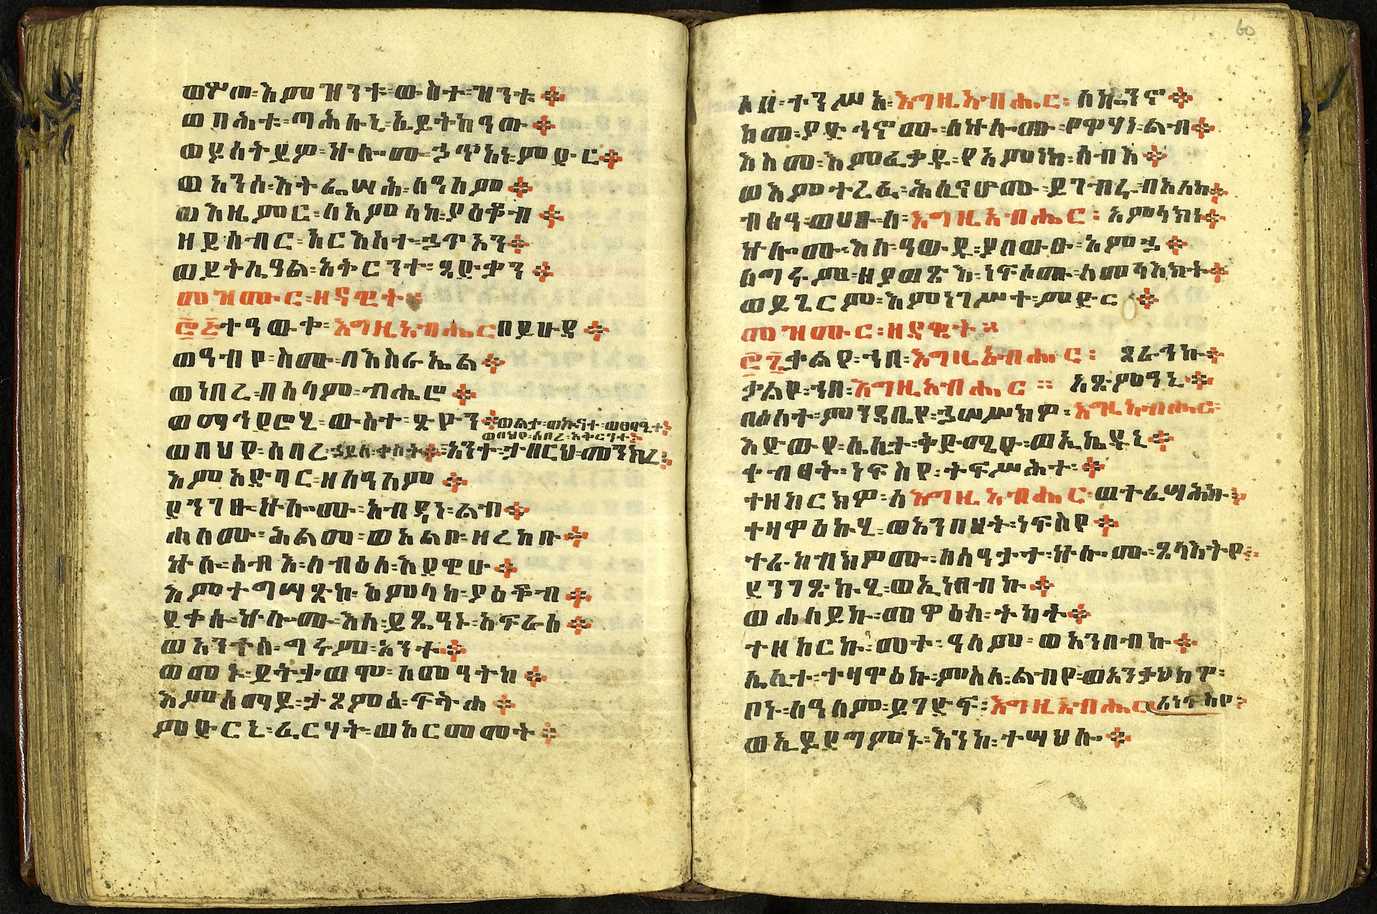 ወሦጠ፡ እምዝንቱ፡ ውስተ፡ ዝንቱ፨
ወባሕቱ፡ ጣሕሉኒ፡ ኢይትከዓው፨
ወይሰትይዎ፡ ኵሎሙ፡ ኃጥአነ፡ ምድር፨
ወአንሰ፡ እትፌሣሕ፡ ለዓለም፨
ወእዜምር፡ ለአምላከ፡ ያዕቆብ፨
ዘይሰብር፡ አርእስተ፡ ኃጥአን፨
ወይትሌዓል፡ አቅርንተ፡ ጻድቃን፨
መዝሙር፡ ዘዳዊት፨
፸፭ተዓውቀ፡ እግዚአብሔር፡ በይሁዳ፨
ወዓብየ፡ ስሙ፡ በእስራኤል፨
ወነበረ፡ በሰላም፡ ብሔሮ፨
ወማኅደሮሂ፡ ውስተ፡ ጽዮን፨ ወልታ፡ ወኵናተ፡ ወፀብዓኒ፨
ወበህየ፡ ሰበረ፡ አቅርንተ፨
ወበህየ፡ ሰበረ፡ ኃይለ፡ ቀስት፨ አንተ፡ ታበርህ፡ መንክረ፨
እምአድባር፡ ዘለዓለም፨
ደንገፁ፡ ኵሎሙ፡ አብዳነ፡ ልብ፨
ሐለሙ፡ ሕልመ፡ ወአልቦ፡ ዘረከቡ፨
ኵሉ፡ ሰብእ፡ ለብዕለ፡ እደዊሁ፨
እምተግሣጽከ፡ አምላከ፡ ያዕቆብ፨
ደቀሱ፡ ኵሎሙ፡ እለ፡ ይጼዓኑ፡ አፍራሰ፨
ወአንተሰ፡ ግሩም፡ አንተ፨
ወመኑ፡ ይትቃወሞ፡ ለመዓትከ፨
እምሰማይ፡ ታጸምዕ፡ ፍትሐ፨
ምድርኒ፡ ፈርሃት፡ ወአርመመት፨
60
ሶበ፡ ተንሥአ፡ እግዚአብሔር፡ ለኰንኖ፨
ከመ፡ ያድኅኖሙ፡ ለኵሎሙ፡ የዋሃነ፡ ልብ፨
እስመ፡ እምፈቃዱ፡ የአምነከ፡ ሰብእ፨
ወእምተረፈ፡ ሕሊናሆሙ፡ ይገብሩ፡ በዓለከ፨
ብፅዓ፡ ወሀቡ፡ ለ፡ እግዚአብሔር፡ አምላክነ፨
ኵሎሙ፡ እለ፡ ዓውዱ፡ ያበውዑ፡ አምኃ፨
ለግሩም፡ ዘያወጽእ፡ ነፍሶሙ፡ ለመላእክት፨
ወይጌርም፡ እምነገሥተ፡ ምድር፨
መዝሙር፡ ዘዳዊት፨
፸፮ቃልየ፡ ኀበ፡ እግዚአብሔር፡ ጸራኅኩ፨
ቃልየ፡ ኀበ፡ እግዚአብሔር፡ አጽምዓኒ፨
በዕለተ፡ ምንዳቤየ፡ ኃሠሥክዎ፡ ለእግዚአብሔር፡
እድውየ፡ ሌሊተ፡ ቅድሜሁ፡ ወኢኬዱኒ፨
ተብፃት፡ ነፍስየ፡ ትፍሥሕተ፨
ተዘከርክዎ፡ ለእግዚአብሔር፡ ወተፈሣሕኩ፨
ተዛዋዕኩሂ፡ ወአንበዛት፡ ነፍስየ፨
ተራከብክዎሙ፡ ለሰዓታተ፡ ኵሎሙ፡ ጸላእትየ፨
ደንገጽኩሂ፡ ወኢነበብኩ፨
ወሐለይኩ፡ መዋዕለ፡ ትካት፨
ተዘከርኩ፡ መተ፡ ዓለም፡ ወአንበብኩ፨
ሌሊተ፡ ተዛዋዕኩ፡ ምስለ፡ ልብየ፡ ወአንቃህክዋ፡
ቦኑ፡ ለዓለም፡ ይገድፍ፡ እግዚአብሔር፡ ለነፍስየ፨
ወኢይደግምኑ፡ እንከ፡ ተሣህሎ፨